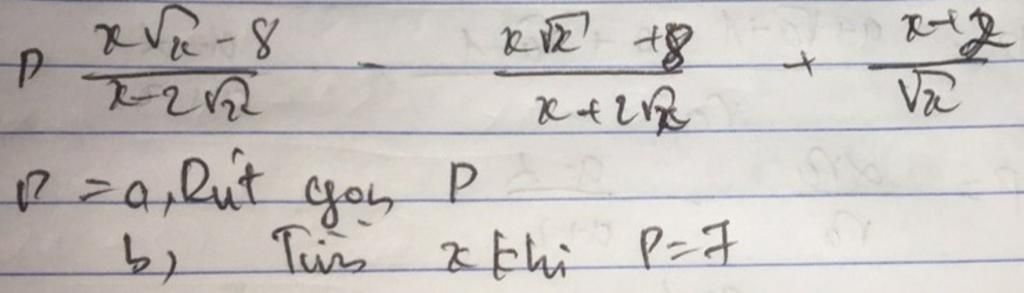 P \frac{x\sqrt{x} - 8}{x - 2\sqrt{x}} - \frac{x\sqrt{x} + 8}{x + 2\sqrt{x}} + \frac{x + 2}{\sqrt{x}}
P = a, Rút gọn P
b, Tìm x khi P = 7